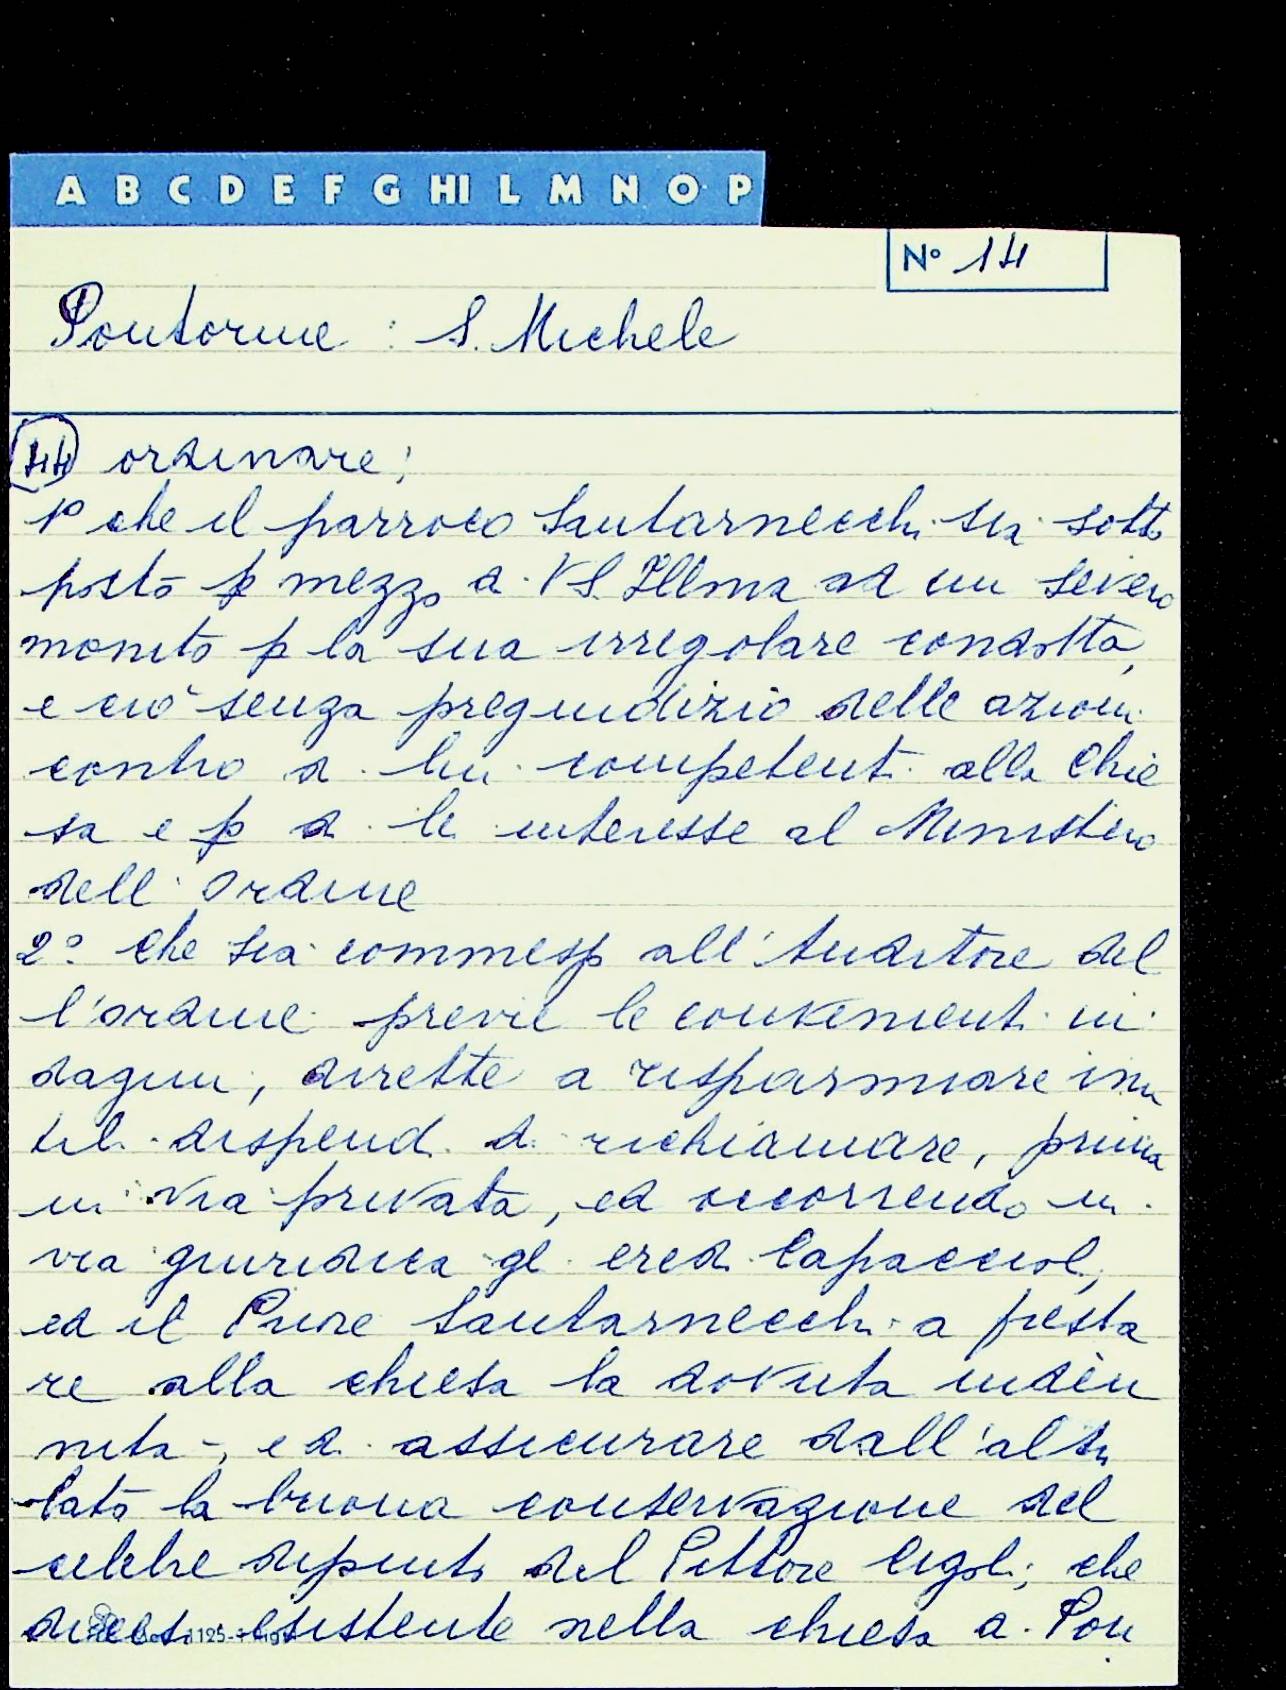 A B C D E F G HI L M N O P
N° 14
Pontorme : S. Michele
44 ordinare;
1° che il parroco Santarnecchi sia sotto
posto p mezzo di VS. Illma ad un severo
monito p la sua irregolare condotta,
e ciò senza pregiudizio delle azioni
contro di lui competenti alla Chie
sa e p di lei interesse al Ministero
dell'Ordine
2° Che sia commesso all'Auditore del
l'ordine previe le convenienti in
dagini, dirette a risparmiare inu
tili dispendi di richiamare, prima
in via privata, ed occorrendo in
via giuridica gli eredi Capaccioli,
ed il Priore Santarnecchi a presta
re alla chiesa la dovuta inden
nità, e di assicurare dall'altro
lato la buona conservazione del
celebre dipinto del Pittore Cigoli; che
dicesi esistente nella chiesa di Pon